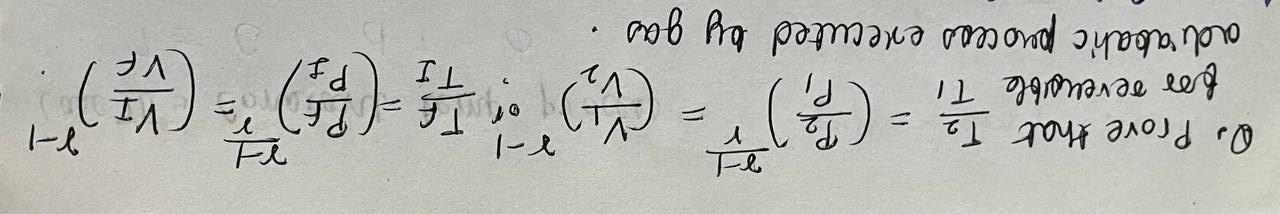 Q. Prove that T2/T1 = (P2/P1)^(γ-1)/γ = (V1/V2)^γ-1 or, Tf/TI = (Pf/PI)^(γ-1)/γ = (VI/Vf)^γ-1.
for reversible
adiabatic process executed by gas.